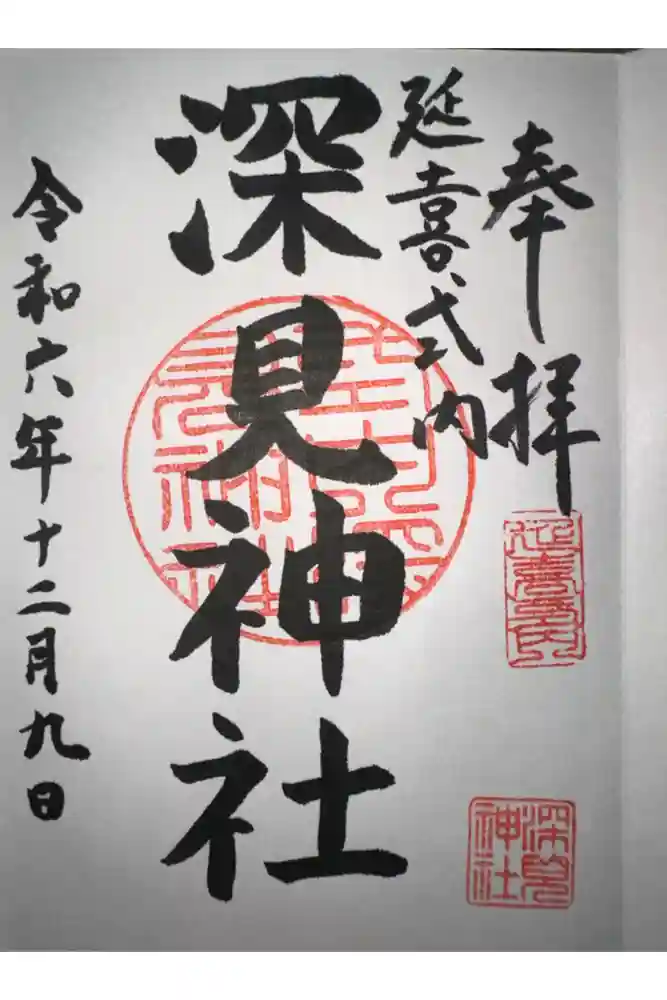 奉拝
延喜式内
深見神社
令和六年十二月九日
延喜式内
深見神社